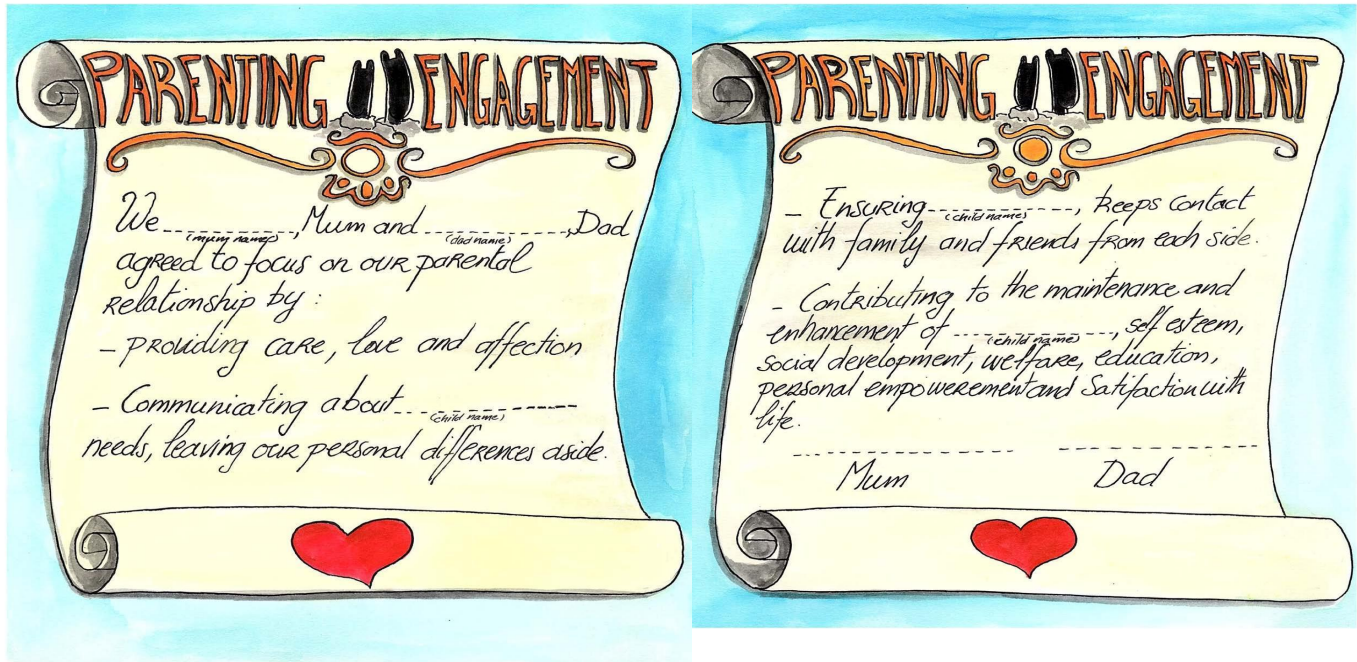 PARENTING ENGAGEMENT
We ____________, Mum and ____________, Dad
(mum name) (dad name)
agreed to focus on our parental
relationship by :
- providing care, love and affection
- Communicating about ____________
(child name)
needs, leaving our personal differences aside.
PARENTING ENGAGEMENT
- Ensuring ____________, keeps contact
(child name)
with family and friends from each side.
- Contributing to the maintenance and
enhancement of ____________, self esteem,
(child name)
social development, welfare, education,
personal empowerement and Satifaction with
life.
Mum Dad